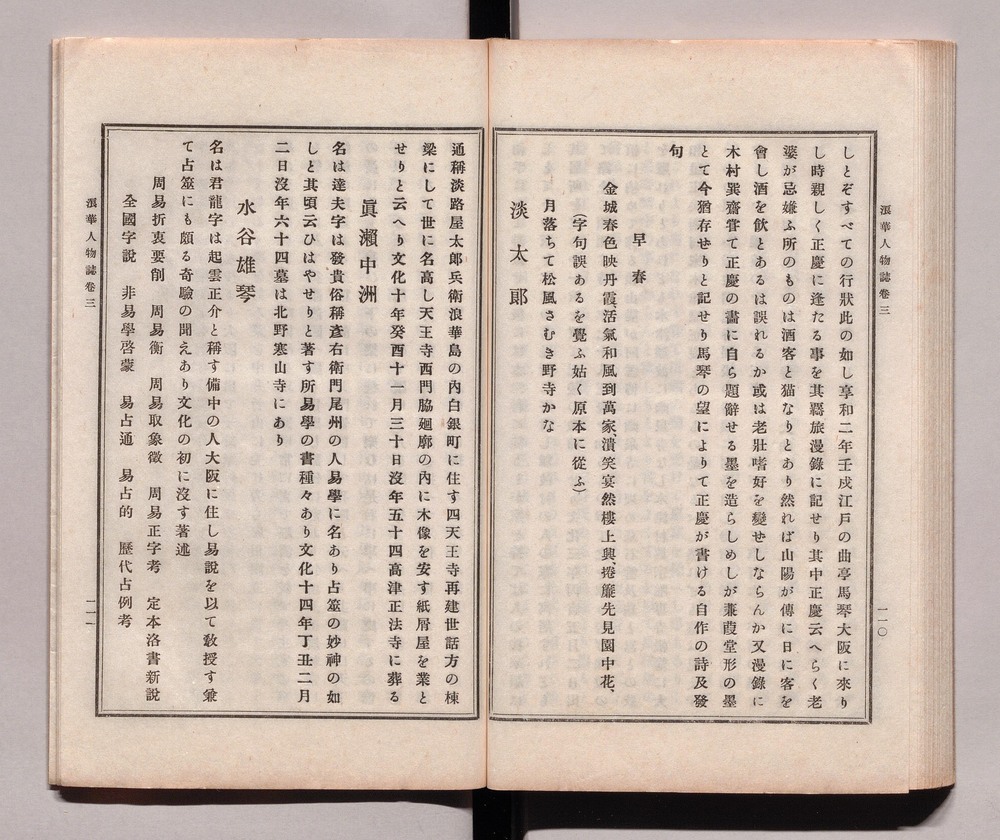 浪華人物誌卷三
一一〇
しとぞすべての行狀此の如し享和二年壬戌江戸の曲亭馬琴大阪に來り
し時親しく正慶に逢たる事を其羇旅漫錄に記せり其中正慶云へらく老
婆が忌嫌ふ所のものは酒客と猫なりとあり然れば山陽が傳に日に客を
會し酒を飮とあるは誤れるか或は老壯嗜好を變せしならんか又漫錄に
木村巽齋嘗て正慶の畵に自ら題辭せる墨を造らしめしが蒹葭堂形の墨
とて今猶存せりと記せり馬琴の望によりて正慶が書ける自作の詩及發
句
早春
金城春色映丹霞活氣和風到萬家潰笑宴然樓上興、捲簾先見園中花、
（字句誤あるを覺ふ姑く原本に從ふ）
月落ちて松風さむき野寺かな
淡太郞
通稱淡路屋太郞兵衛浪華島の內白銀町に住す四天王寺再建世話方の棟
梁にして世に名高し天王寺西門脇廻廓の內に木像を安す紙屑屋を業と
せりと云へり文化十年癸酉十一月三十日沒年五十四高津正法寺に葬る
眞瀨中洲
名は達夫字は發貴俗稱彥右衛門尾州の人易學に名あり占筮の妙神の如
しと其頃云ひはやせりと著す所易學の書種々あり文化十四年丁丑二月
二日沒年六十四墓は北野寒山寺にあり
水谷雄琴
名は君龍字は起雲正介と稱す備中の人大阪に住し易說を以て敎授す兼
て占筮にも頗る奇驗の聞えあり文化の初に沒す著述
周易折衷要削　周易衡　周易取象徵　周易正字考　定本洛書新說
全國字說　非易學啓蒙　易占通　易占的　歷代占例考
浪華人物誌卷三
一一一